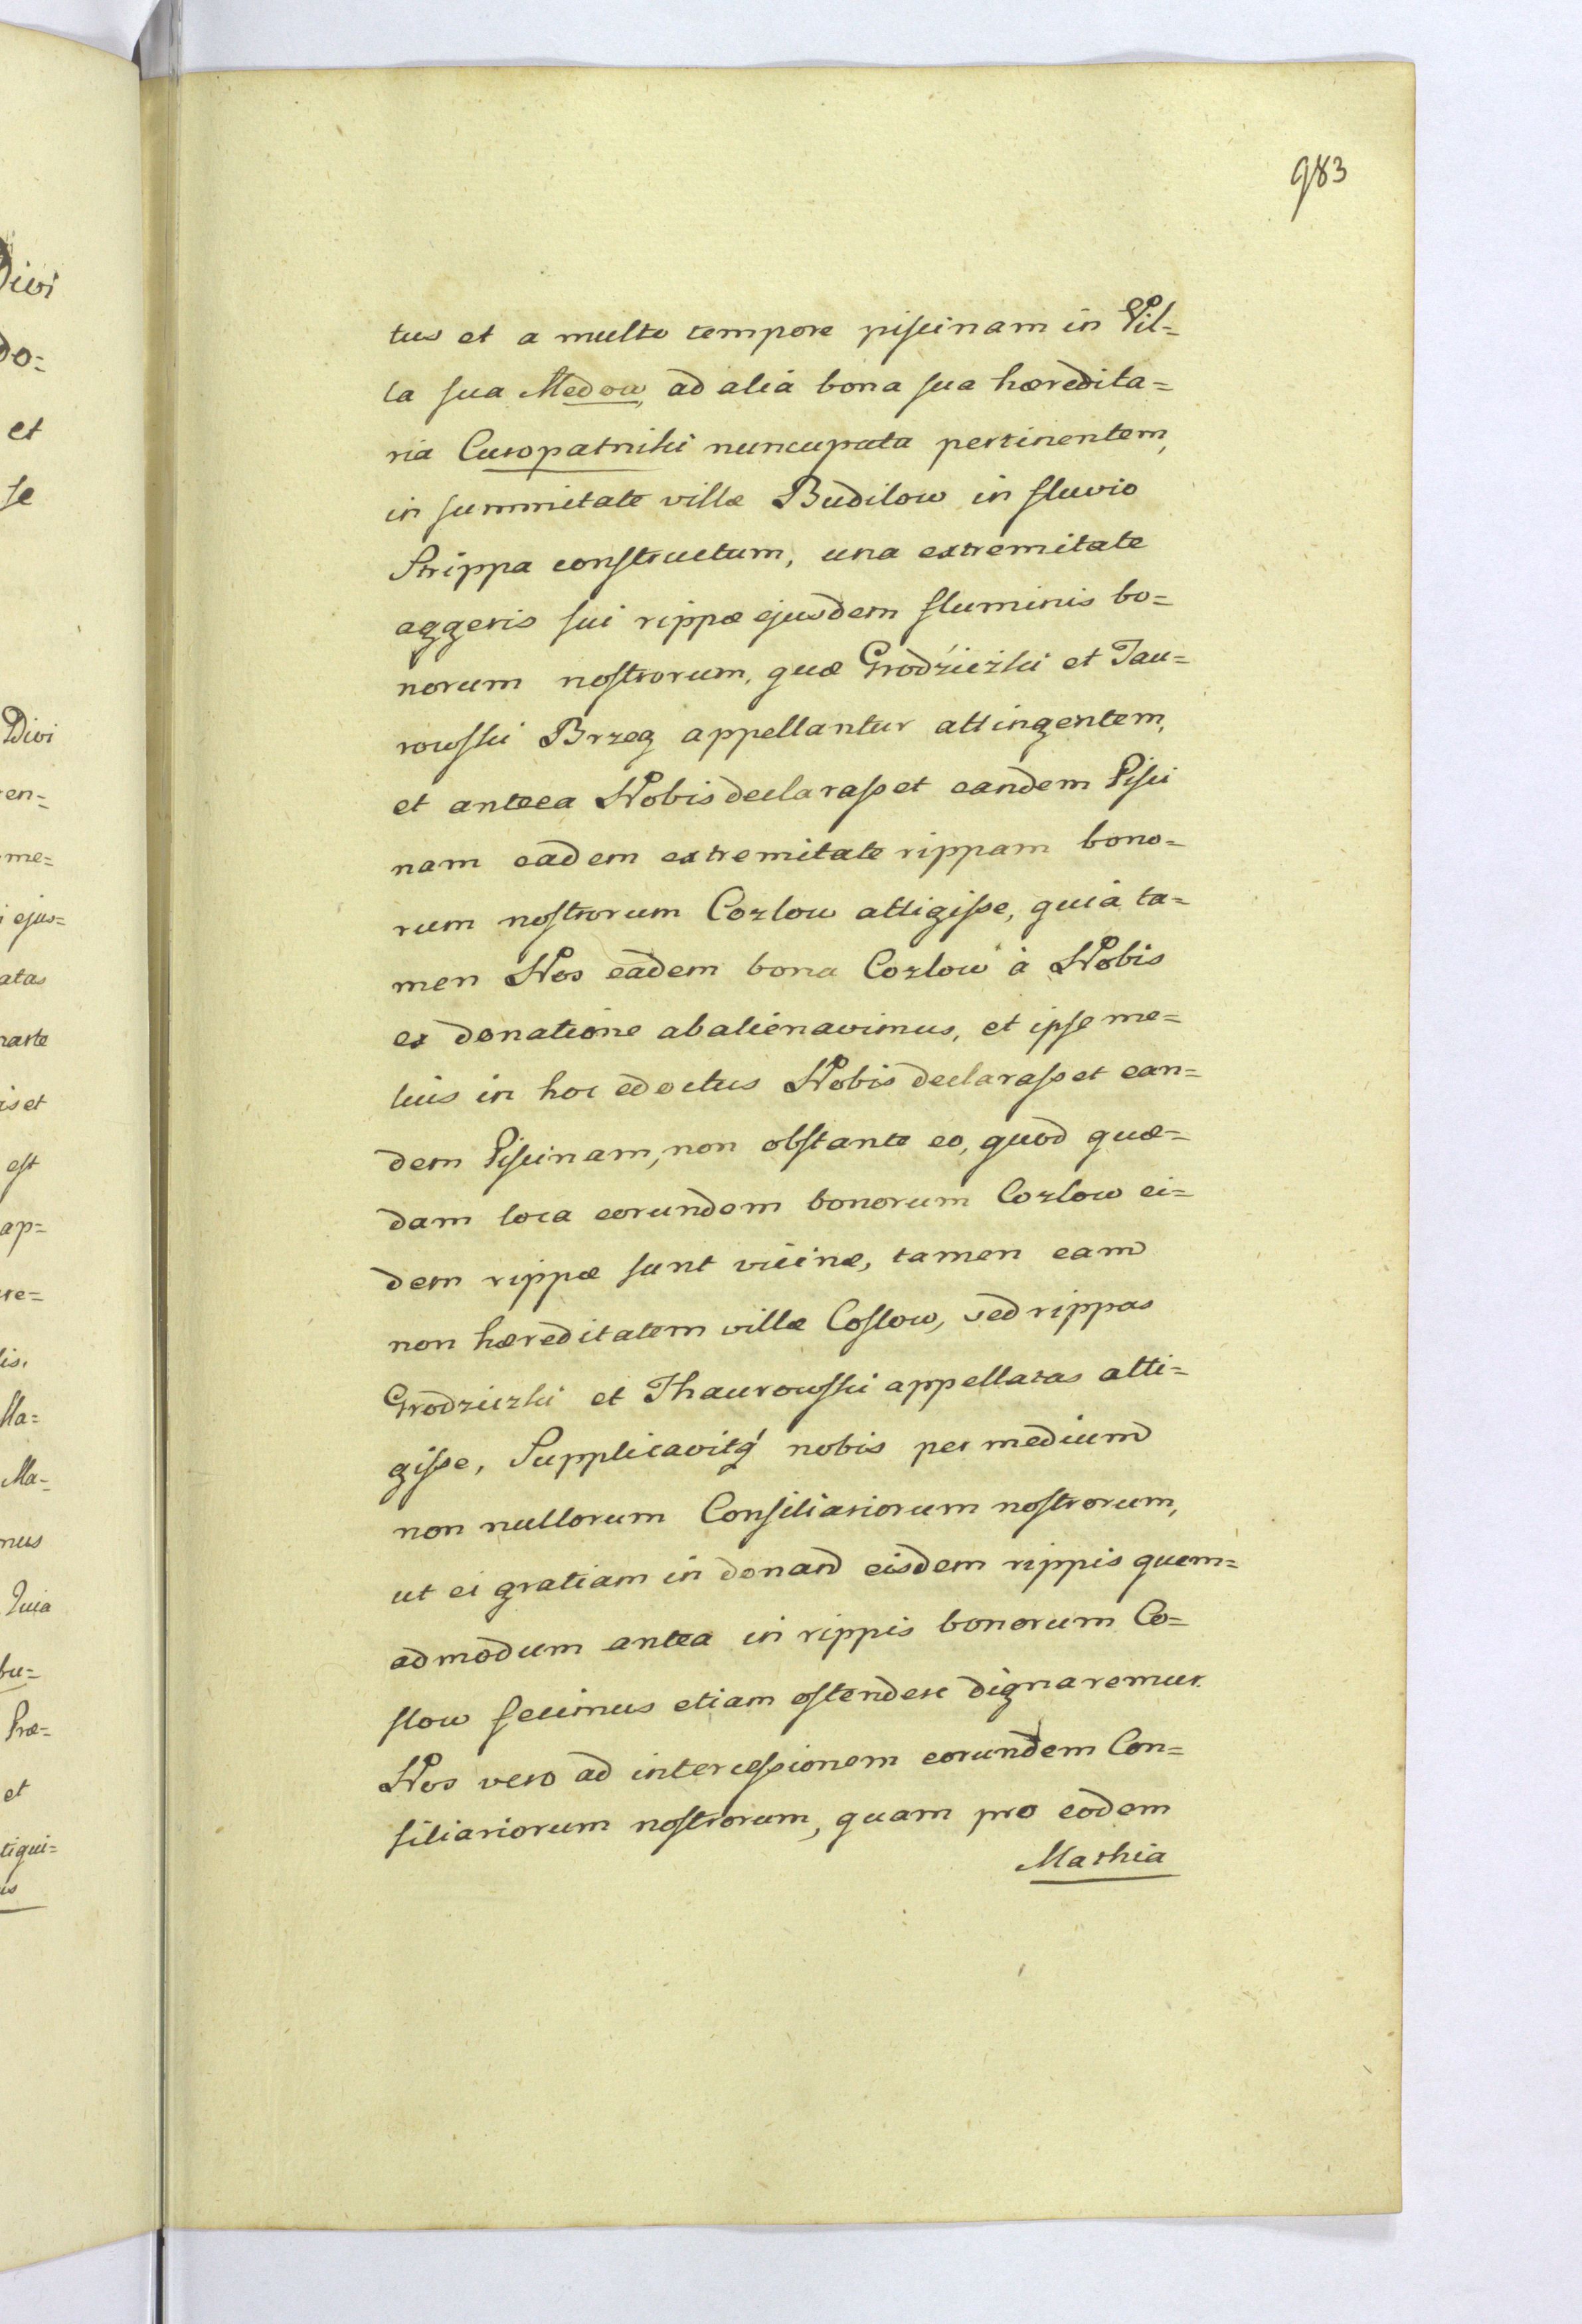 983
tus et a multo tempore piscinam in Vil=
la sua Medow, ad alia bona sua hæredita=
ria Curopatniki nuncupata pertinentem,
in summitate villæ Budilow in fluvio
Strippa constructum, una extremitate
aggeris sui rippæ ejusdem fluminis bo=
norum nostrorum, quæ Grodźiczki et Tau=
rowski Brzeg appellantur attingentem,
et antea Nobis declarasset eandem Pisci
nam eadem extremitate rippam bono=
rum nostrorum Cozlow attigisse, quia ta=
men Nos eadem bona Cozlow à Nobis
ex donatione abalienavimus, et ipse me=
lius in hoc edoctus Nobis declarasset ean=
dem Piscinam, non obstante eo, quod quæ=
dam loca eorundem bonorum Cozlow ei=
dem rippæ sunt vicinæ, tamen eam
non hæreditatem villæ Coslow, sed rippas
Grodziczki et Thaurowski appellatas atti=
gisse, Supplicavitq́ nobis per medium
non nullorum Consiliariorum nostrorum,
ut ei gratiam in donand eisdem rippis quem=
admodum antea in rippis bonorum Co=
slow fecimus etiam ostendere dignaremur.
Nos vero ad intercessionem eorundem Con=
siliariorum nostrorum, quam pro eodem
Mathia
Divi
do=
et
se
Divi
en=
me=
ejus=
atas
parte
is et
est
ap=
re=
lis.
Ma=
mus
Quia
bu=
Præ=
et
tiqui=